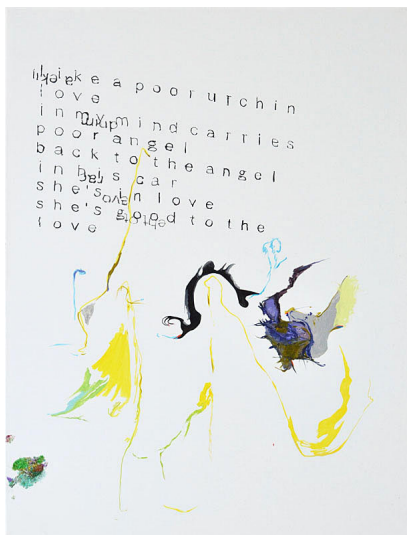 like a poor urchin
love
in my mind carries
poor angel
back to the angel
in his car
she's in love
she's good to the
love